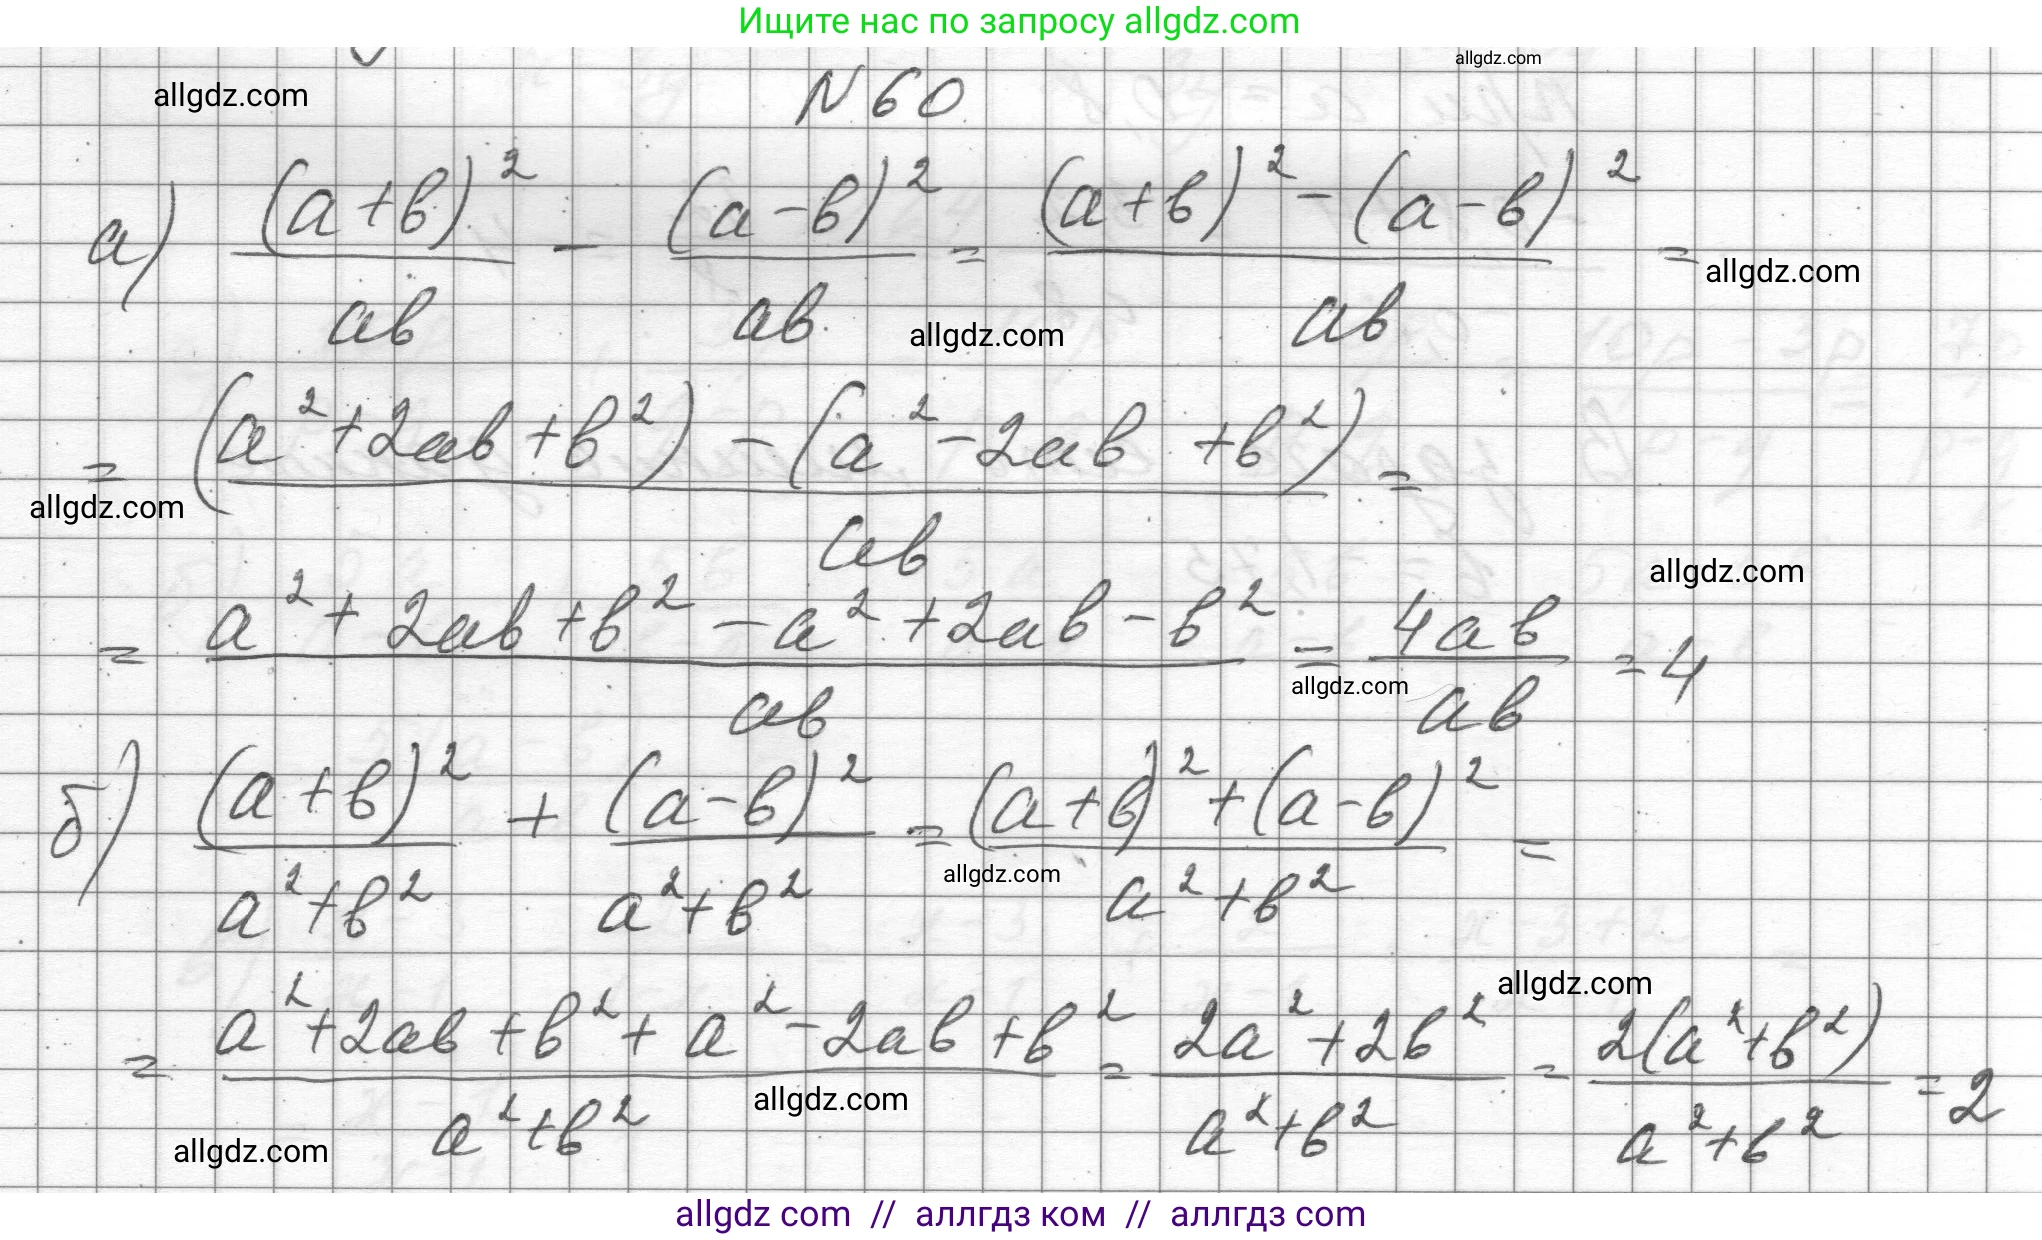 Ищите нас по запросу allgdz.com
allgdz.com
allgdz.com
N 60
а) (a+b)²/ab - (a-b)²/ab = ((a+b)² - (a-b)²)/ab =
allgdz.com
allgdz.com
= ((a²+2ab+b²) - (a²-2ab+b²))/ab =
allgdz.com
allgdz.com
= (a²+2ab+b²-a²+2ab-b²)/ab = 4ab/ab = 4
allgdz.com
б) (a+b)²/(a²+b²) + (a-b)²/(a²+b²) = ((a+b)²+(a-b)²)/(a²+b²) =
allgdz.com
allgdz.com
= (a²+2ab+b²+a²-2ab+b²)/(a²+b²) = (2a²+2b²)/(a²+b²) = 2(a²+b²)/(a²+b²) = 2
allgdz.com
allgdz.com
allgdz com // аллгдз ком // аллгдз com